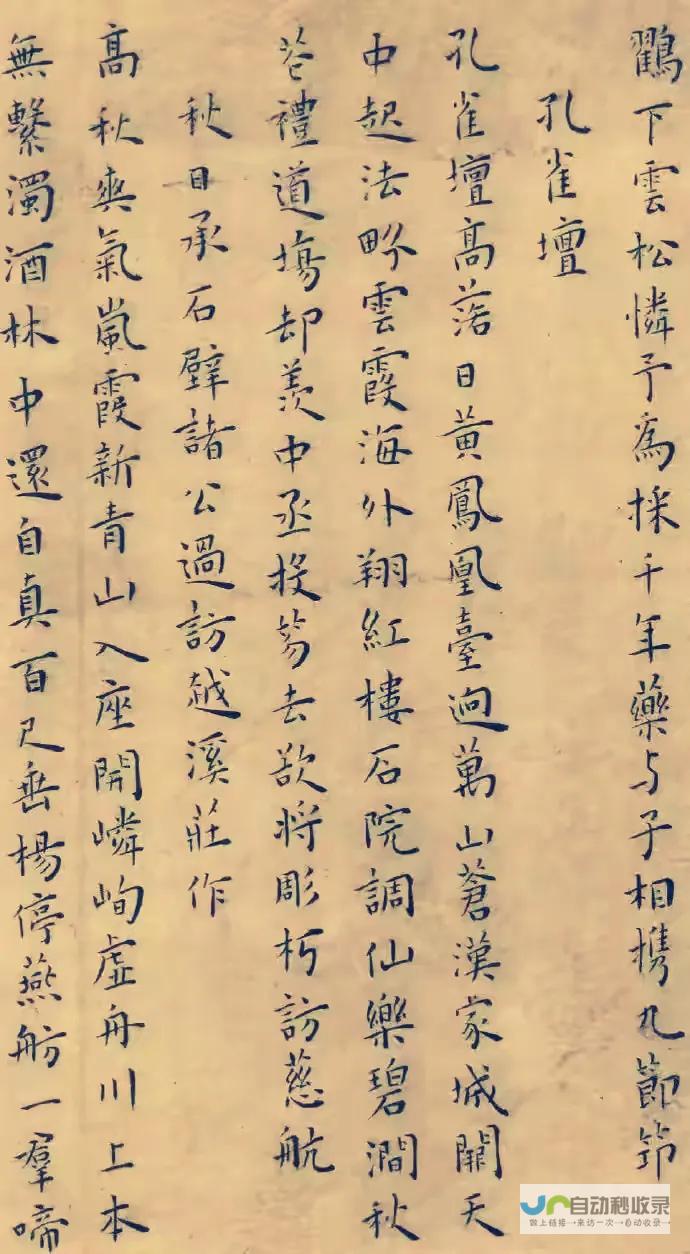 鸛下雲松憐予為採千年藥与子相携九節笻
孔雀壇
孔雀壇髙落日黄鳳凰臺逈萬山蒼漢家城闕天
中起法界雲霞海外翔紅樓石院調仙樂碧澗秋
苍禮道場却羨中丞投劵去欲将彫朽訪慈航
秋日承石壁諸公過訪越溪莊作
髙秋爽氣嵐霞新青山入座開嶙峋虚舟川上本
無繫濁酒林中還自真百尺垂楊停燕舫一羣啼
自动秒收录
做上链接→来访一次→自动收录